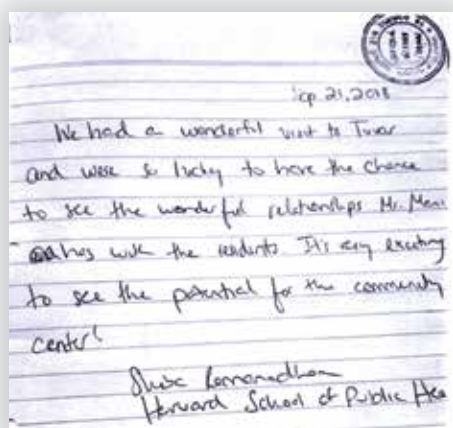 Sep 21, 2018
We had a wonderful visit to
and were so lucky to have the chance
to see the wonderful relationships Mr.
has with the residents. It's very exciting
to see the potential for the community
center!
Harvard School of Public Hea